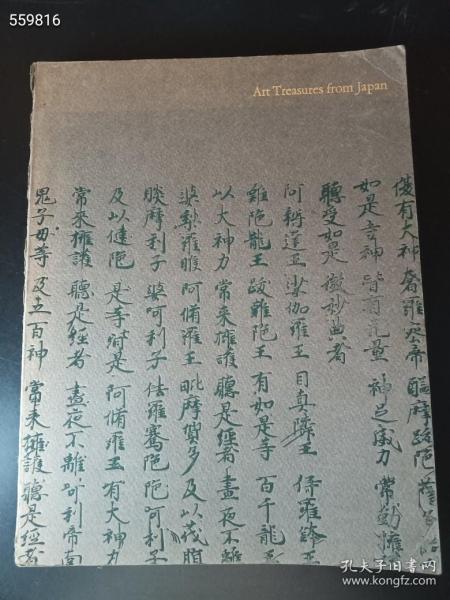 559816
Art Treasures from Japan
復有大神 奢羅蜜帝 醯摩跋陀 薩
如是等神 皆有無量 神足威力 常勤擁
聽受如是 微妙典者
阿耨達王 娑伽羅王 目真隣王 倚羅鉢王
難陀龍王 跋難陀王 有如是等 百千龍王
以大神力 常來擁護 聽是經者 晝夜不離
婆梨羅睺 阿脩羅王 毗摩質多 及以茂脂
睒摩利子 婆呵利子 佉羅騫陀 阿利子
及以揵陀 是等皆是 阿脩羅王 有大神力
常來擁護 聽是經者 晝夜不離 呵利帝南
鬼子母等 及五百神 常來擁護 聽是經者
孔夫子旧书网